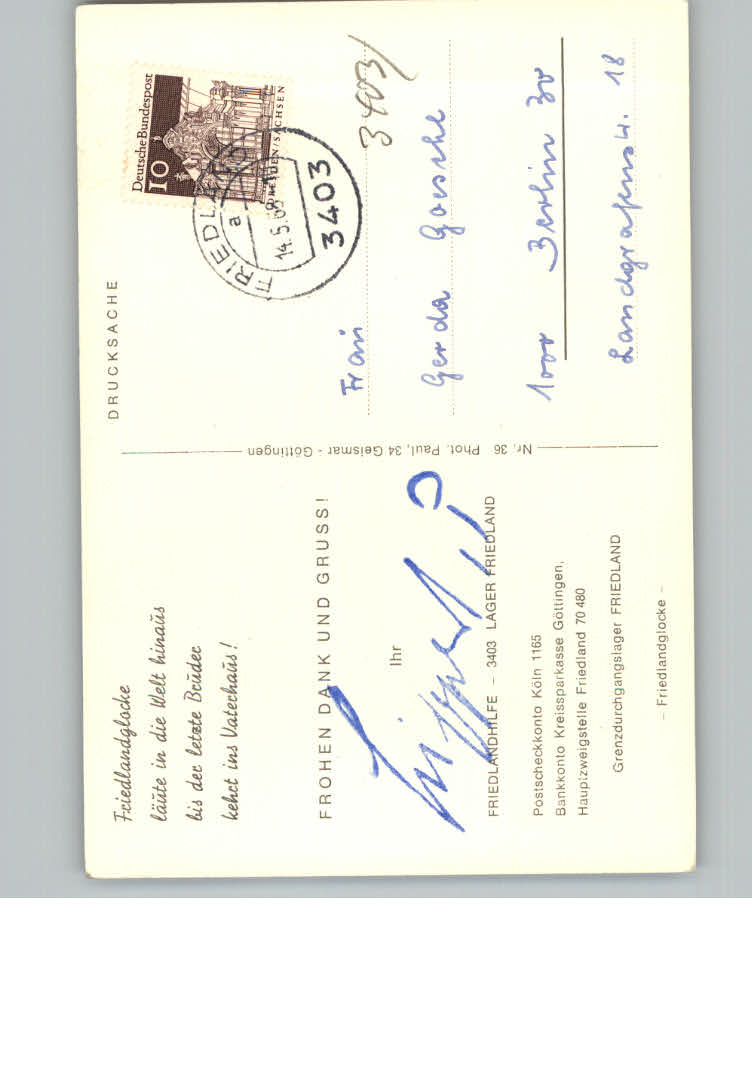 Friedlandglocke
läute in die Welt hinaus
bis der letzte Bruder
kehrt ins Vaterhaus!
FROHEN DANK UND GRUSS!
Ihr
FRIEDLANDHILFE – 3403 LAGER FRIEDLAND
Postscheckkonto Köln 1165
Bankkonto Kreissparkasse Göttingen,
Hauptzweigstelle Friedland 70 480
Grenzdurchgangslager FRIEDLAND
– Friedlandglocke –
Nr. 36 Phot. Paul, 34 Geismar - Göttingen
DRUCKSACHE
Deutsche Bundespost
10
DRESDEN/SACHSEN
FRIEDLAND
a
14.5.
3403
3403/
Frau
Gerda
1000 Berlin 30
Landgrafenstr. 18